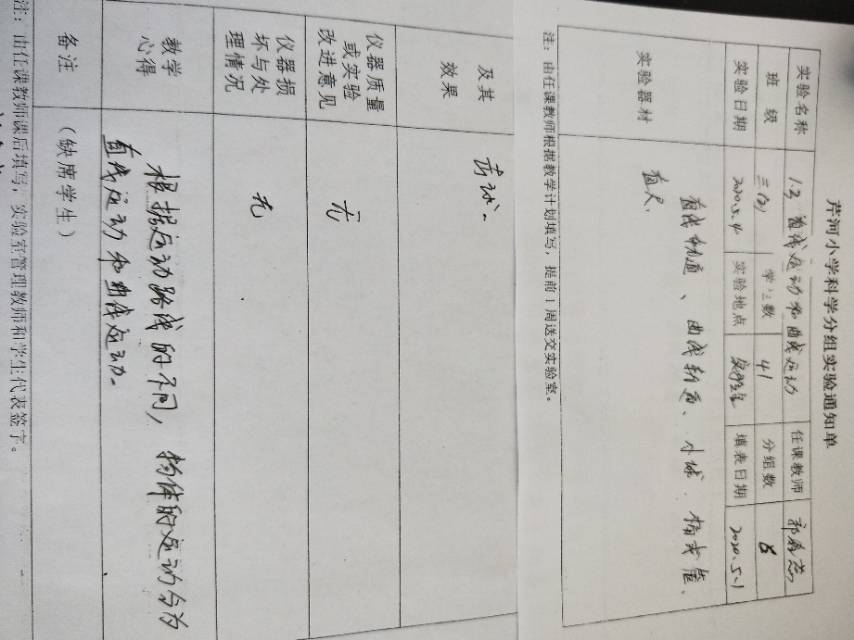 芹河小学科学分组实验通知单
实验名称 1.3 直线运动和曲线运动 任课教师
班 级 三(2) 学生数 41 分组数 8
实验日期 2020.5.4 实验地点 实验室 填表日期 2020.5.1
实验器材 直线轨道、曲线轨道、小球、
直尺、
注：由任课教师根据教学计划填写，提前1周送交实验室。
及其
效果
仪器质量
或实验
改进意见 无
仪器损
坏与处
理情况 无
教学
心得 根据运动路线的不同，物体的运动分为
直线运动和曲线运动。
备注 （缺席学生）
注：由任课教师课后填写，实验室管理教师和学生代表签字。